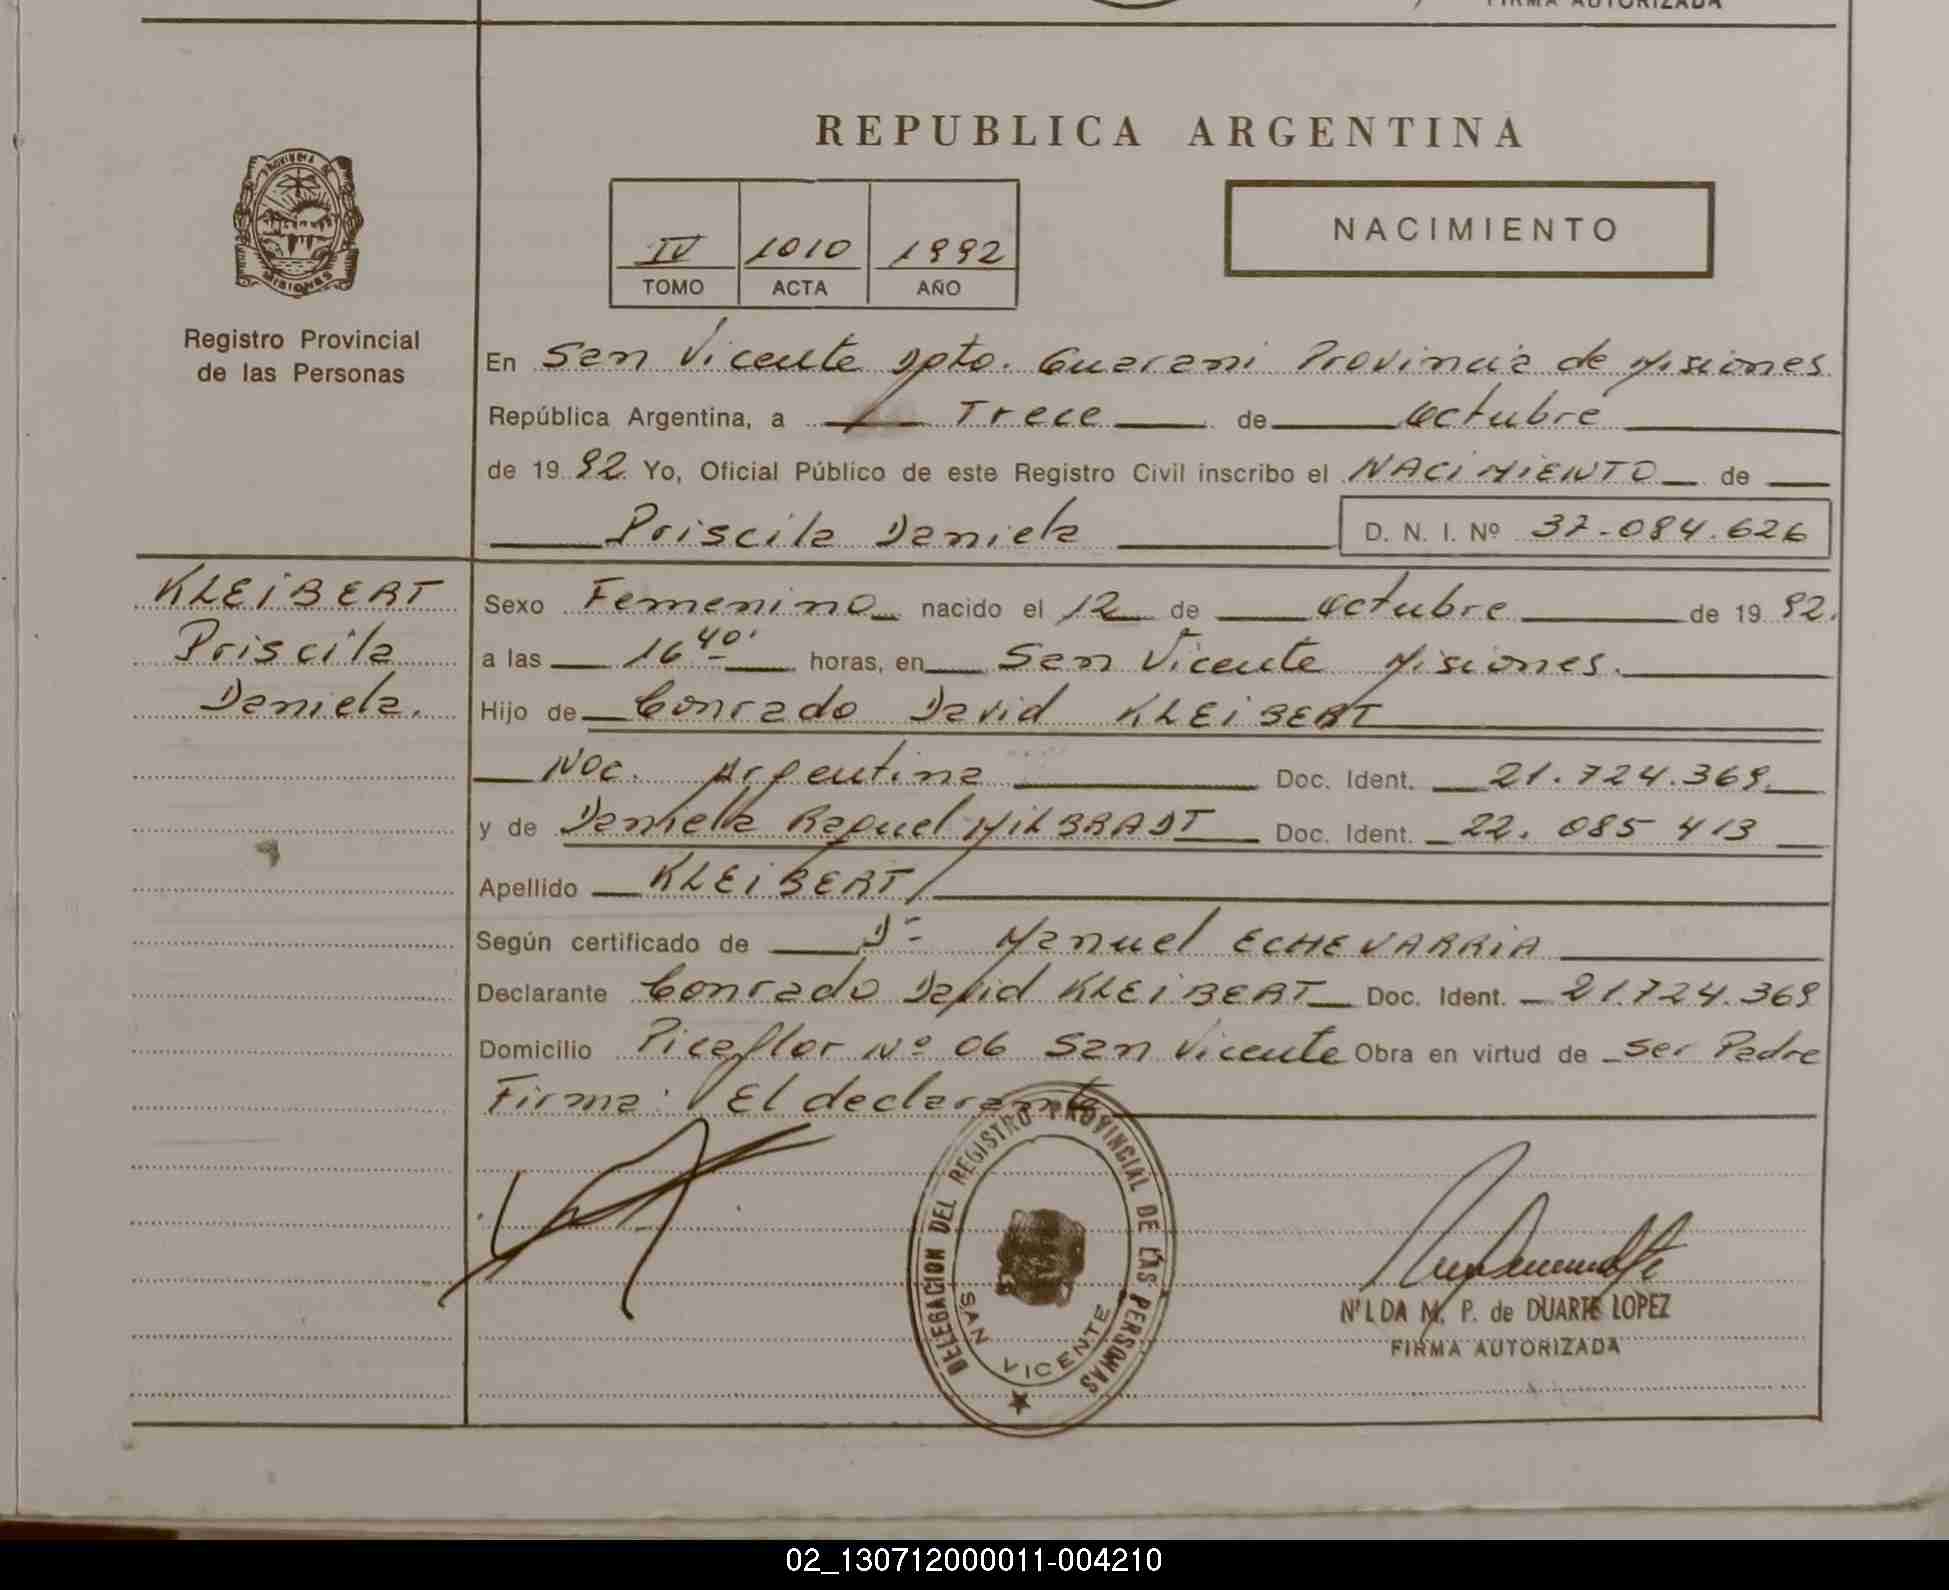 FIRMA AUTORIZADA
REPUBLICA ARGENTINA
PROVINCIA DE
MISIONES
NACIMIENTO
IV 1010 1992
TOMO ACTA AÑO
Registro Provincial
de las Personas
En San Vicente Dpto. Guarani Provincia de Misiones
República Argentina, a Trece de Octubre
de 19 92 Yo, Oficial Público de este Registro Civil inscribo el NACIMIENTO de
Priscila Daniela D. N. I. Nº 37.084.626
KLEIBERT
Priscila
Daniela.
Sexo Femenino nacido el 12 de Octubre de 19 92.
a las 16 40' horas, en San Vicente Misiones.
Hijo de Conrado David KLEIBERT
Nac. Argentina Doc. Ident. 21.724.369.
y de Daniela Raquel MILBRADT Doc. Ident. 22.085 413
Apellido KLEIBERT
Según certificado de Dr Manuel ECHEVARRIA
Declarante Conrado David KLEIBERT Doc. Ident. 21.724.369
Domicilio Picaflor Nº 06 San Vicente Obra en virtud de ser Padre
Firma: El declarante
DELEGACION DEL REGISTRO PROVINCIAL DE LAS PERSONAS
SAN VICENTE
NILDA M. P. de DUARTE LOPEZ
FIRMA AUTORIZADA
02_130712000011-004210